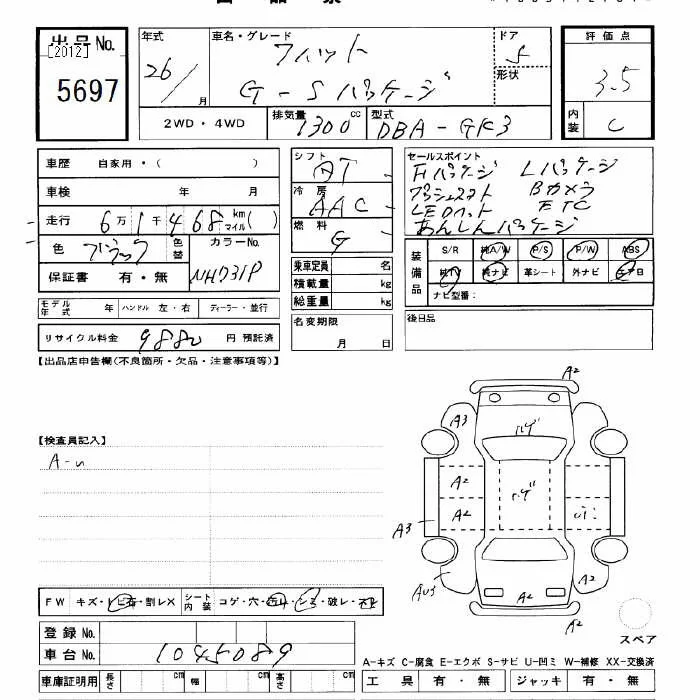 出品No.
[2012]
5697
年式
26/
月
車名・グレード
フィット
G-Sパッケージ
ドア
5
形状
2WD・4WD
排気量
1300cc
型式
DBA-GK3
評価点
3.5
内装
C
車歴 自家用・( )
車検 年 月
走行 6万1千468 km マイル( )
色 ブラック 色替 カラーNo.
保証書 有・無 NH731P
モデル年式 年 ハンドル 左・右 ディーラー・並行
リサイクル料金 9880 円 預託済
シフト AT
冷房 AAC
燃料 G
乗車定員 名
積載量 kg
総重量 kg
名変期限
月 日
セールスポイント
Fパッケージ Lパッケージ
プッシュスタート Bカメラ
LEDヘット ETC
あんしんパッケージ
装備品
S/R 純A/W P/S P/W ABS
純TV 純ナビ 革シート 外ナビ エア日
ナビ型番:
後日品
【出品店申告欄(不良箇所・欠品・注意事項等)】
【検査員記入】
A-U
A2
A3
ハゲ
A2
ハゲ
A2
A3
A2
A2
FW キズ・トビ石・割レX シート内装 コゲ・穴・切レ・シミ・破レ・
登録No.
車台No. 1045089
車庫証明用 長さ cm 幅 cm 高さ cm
スペア
A-キズ C-腐食 E-エクボ S-サビ U-凹ミ W-補修 XX-交換済
工具 有・無 ジャッキ 有・無